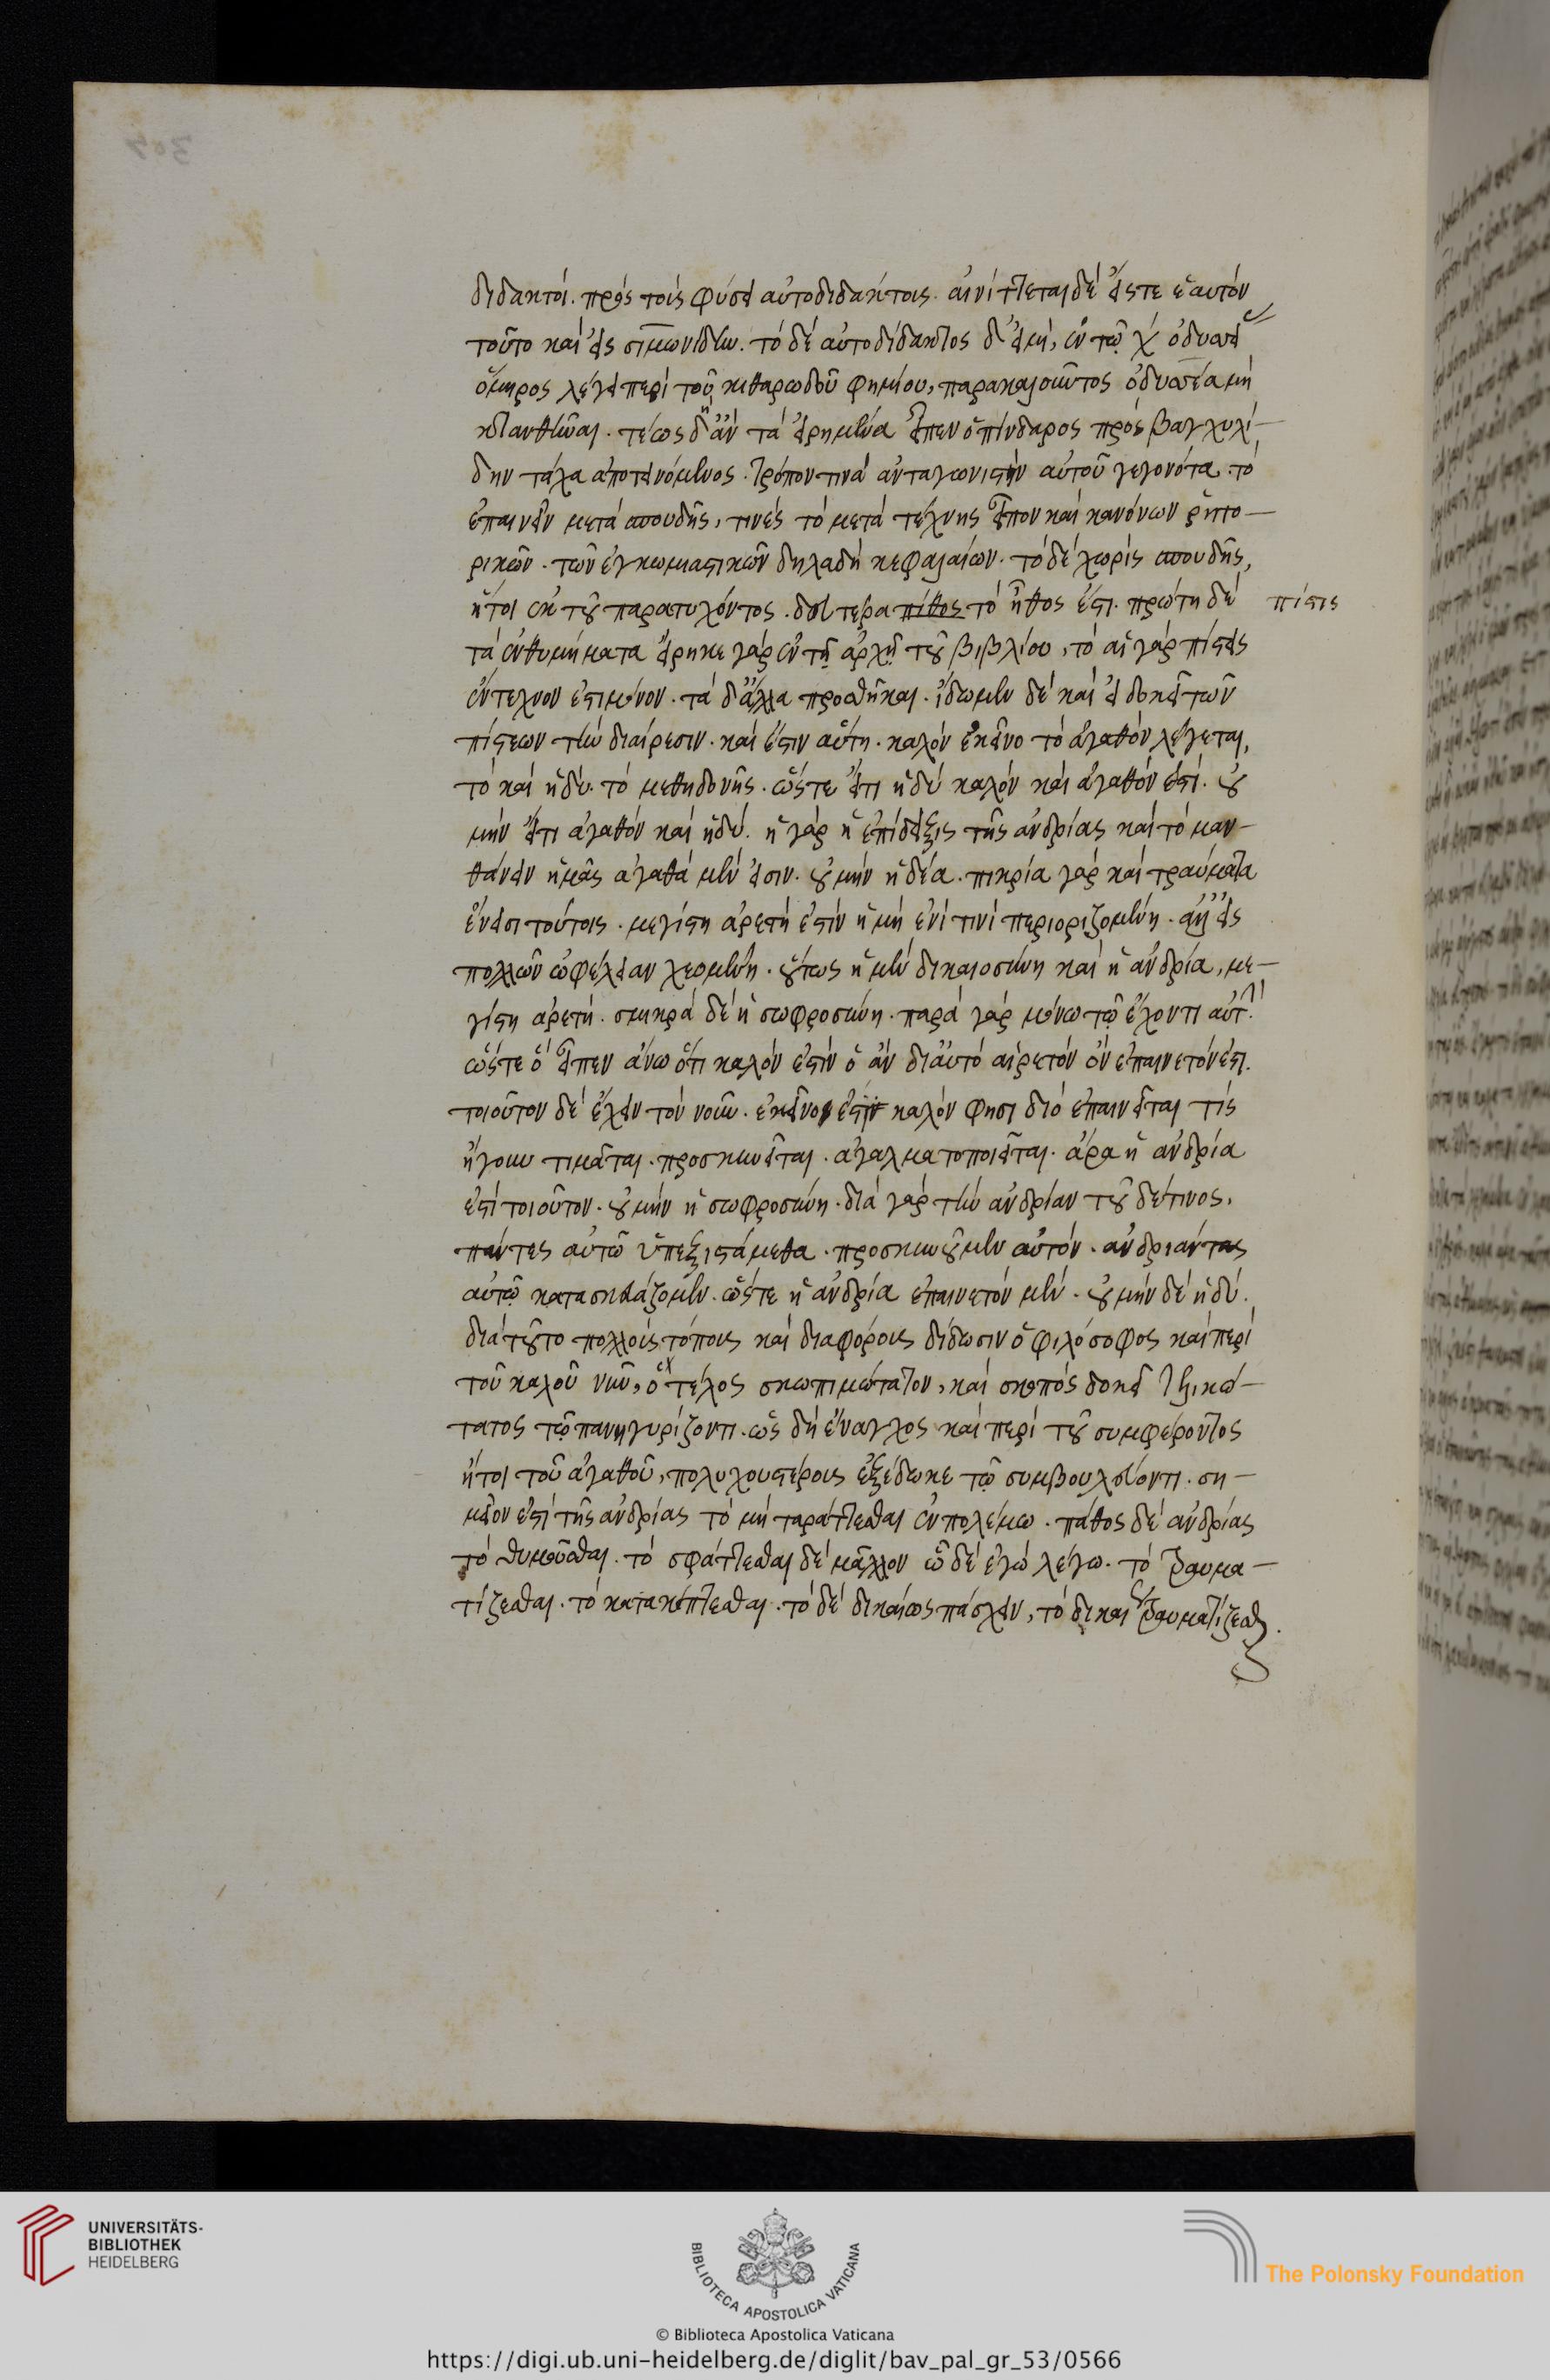 διδακτοί. πρὸς τοῖς φύσει αὐτοδιδάκτοις. αἰνίττεται δὲ εἴς τε ἑαυτὸν
τοῦτο καὶ εἰς σιμωνίδην. τὸ δὲ αὐτοδίδακτος δ' εἰμί, ἐν τῷ χ ὀδυσσεί
ὅμηρος λέγει περὶ τοῦ κιθαρωδοῦ φημίου, παρακαλοῦντος ὀδυσσέα μὴ
κτανθῆναι. τέως δ' ἂν τὰ εἰρημένα εἶπεν ὁ πίνδαρος πρὸς βαγχυλί-
δην τάχα ἀποτεινόμενος. τρόπον τινὰ ἀνταγωνιστὴν αὐτοῦ γεγονότα. τὸ
ἐπαινεῖν μετὰ σπουδῆς, τινὲς τὸ μετὰ τέχνης εἶπον καὶ κανόνων ῥητο-
ρικῶν. τῶν ἐγκωμιαστικῶν δηλαδὴ κεφαλαίων. τὸ δὲ χωρὶς σπουδῆς,
ἤτοι ἐκ τοῦ παρατυχόντος. δευτέρα πίθος τὸ ἦθος ἐστι. πρώτη δὲ
πίστις
τὰ ἐνθυμήματα εἴρηκε γὰρ ἐν τῇ ἀρχῇ τοῦ βιβλίου, τὸ αἱ γὰρ πίστεις
ἔντεχνον ἐστι μόνον. τὰ δ' ἄλλα προσθῆκαι. ἴδωμεν δὲ καὶ εἰ δοκεῖ τῶν
πίστεων τὴν διαίρεσιν. καὶ ἔστιν αὕτη. καλὸν ἐκεῖνο τὸ ἀγαθὸν λέγεται,
τὸ καὶ ἡδύ. τὸ μεθ ηδονῆς. ὥστε εἴ τι ἡδὺ καλὸν καὶ ἀγαθὸν ἐστί. οὐ
μὴν εἴ τι ἀγαθὸν καὶ ἡδύ. ἡ γὰρ ἡ ἐπίδειξις τῆς ἀνδρίας καὶ τὸ μαν-
θάνειν ἡμᾶς ἀγαθὰ μέν εἰσιν. οὐ μὴν ἡδέα. πικρία γὰρ καὶ τραύματα
ἔνεισι τούτοις. μεγίστη ἀρετή ἐστιν ἡ μὴ ἑνί τινι περιοριζομένη. ἀλλ' εἰς
πολλῶν ὠφέλειαν χεομένη. οὕτως ἡ μὲν δικαιοσύνη καὶ ἡ ἀνδρία, με-
γίστη ἀρετή. σμικρὰ δὲ ἡ σωφροσύνη. παρὰ γὰρ μόνω τῷ ἔχοντι αὐτὴ.
ὥστε ὃ εἶπεν ἄνω ὅτι καλὸν ἐστὶν ὃ ἂν διἀυτὸ αἱρετὸν ὂν ἐπαινετὸν ἐστι.
τοιοῦτον δὲ ἔχειν τὸν νοῦν. ἐκεῖνον ἐστιν καλὸν φησι διὸ ἐπαινεῖται τίς
ἤγουν τιμᾶται. προσκυνεῖται. ἀγαλματοποιεῖται. ἄρα ἡ ἀνδρία
ἐστὶ τοιοῦτον. οὐ μὴν ἡ σωφροσύνη. διὰ γὰρ τὴν ἀνδρίαν τοῦ δεῖνος,
πάντες αὐτῶ ὑπεξιστάμεθα. προσκυνοῦμεν αὐτόν. ἀνδριάντας
αὐτῷ κατασκευάζομεν. ὥστε ἡ ἀνδρία ἐπαινετὸν μέν. οὐ μὴν δὲ ἡδύ.
διὰ τοῦτο πολλοὺς τόπους καὶ διαφόρους δίδωσιν ὁ φιλόσοφος καὶ περὶ
τοῦ καλοῦ νῦν, ὃ τέλος σκωπιμώτατον, καὶ σκοπὸς δοκεῖ λξικώ-
τατος τῷ πανηγυρίζοντι. ὡς δὴ ἔναγχος καὶ περὶ τοῦ συμφέροντος
ἤτοι τοῦ ἀγαθοῦ, πολυχουστέρους ἐξέδωκε τῷ συμβουλεύοντι. ση-
μεῖον ἐστὶ τῆς ἀνδρίας τὸ μὴ ταράττεσθαι ἐν πολέμω. πάθος δὲ ἀνδρίας
τὸ θυμοῦσθαι. τὸ σφάττεσθαι δὲ μᾶλλον ὧδε ἐγὼ λέγω. τὸ τραυμα-
τίζεσθαι. τὸ κατακόπτεσθαι. τὸ δὲ δικαίως πάσχειν, τὸ δικαίως τραυματίζεσθαι.
UNIVERSITÄTS-
BIBLIOTHEK
HEIDELBERG
BIBLIOTECA APOSTOLICA VATICANA
The Polonsky Foundation
© Biblioteca Apostolica Vaticana
https://digi.ub.uni-heidelberg.de/diglit/bav_pal_gr_53/0566